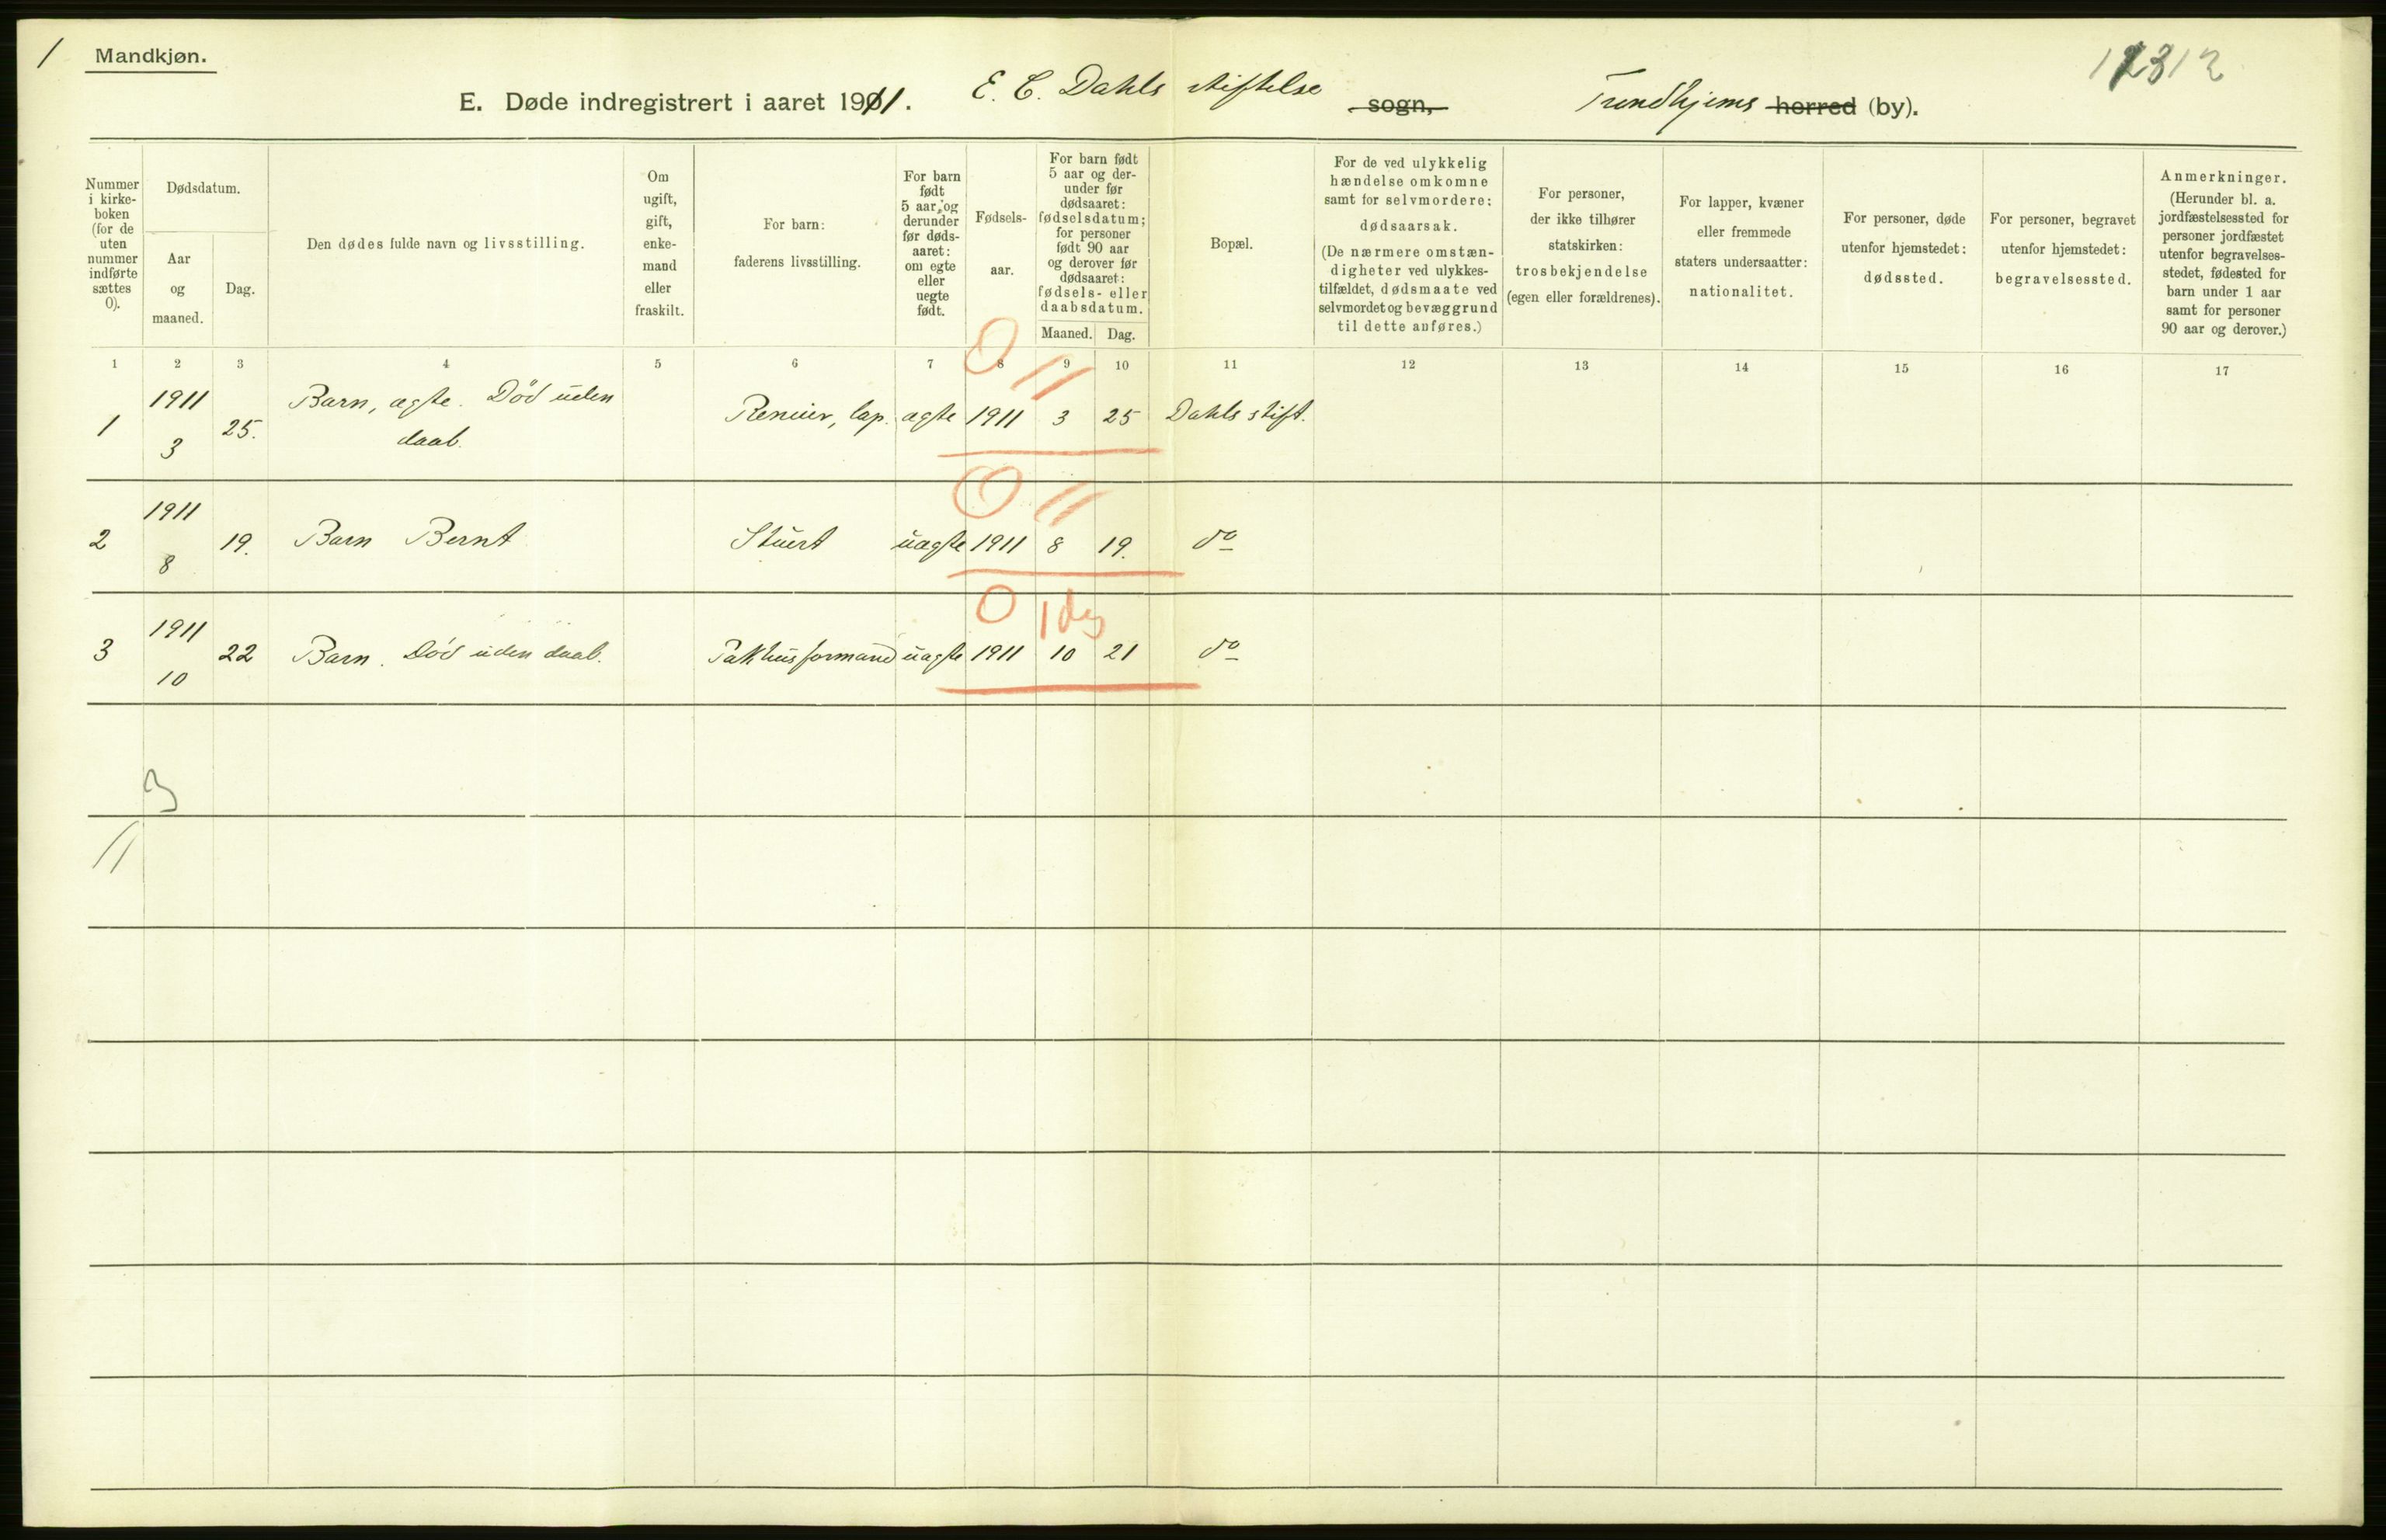 1
Mandkjøn.
E. Døde indregistrert i aaret 1911. E. C. Dahls stiftelse sogn, Trondhjems herred (by).
Nummer i kirke-boken (for de uten nummer indførte sættes 0).
Dødsdatum.
Aar og maaned.
Dag.
Den dødes fulde navn og livsstilling.
Om ugift, gift, enke-mand eller fraskilt.
For barn: faderens livsstilling.
For barn født 5 aar og derunder før døds-aaret: om egte eller uegte født.
Fødsels-aar.
For barn født 5 aar og der-under før dødsaaret: fødselsdatum; for personer født 90 aar og derover før dødsaaret: fødsels- eller daabsdatum.
Maaned.
Dag.
Bopæl.
For de ved ulykkelig hændelse omkomne samt for selvmordere: dødsaarsak. (De nærmere omstæn-digheter ved ulykkes-tilfældet, dødsmaate ved selvmordet og bevæggrund til dette anføres.)
For personer, der ikke tilhører statskirken: trosbekjendelse (egen eller forældrenes).
For lapper, kvæner eller fremmede staters undersaatter: nationalitet.
For personer, døde utenfor hjemstedet: dødssted.
For personer, begravet utenfor hjemstedet: begravelsessted.
Anmerkninger. (Herunder bl. a. jordfæstelsessted for personer jordfæstet utenfor begravelses-stedet, fødested for barn under 1 aar samt for personer 90 aar og derover.)
1 2 3 4 5 6 7 8 9 10 11 12 13 14 15 16 17
0 11
1 1911 3 25. Barn, ægte. Död uden daab. ægte 1911 3 25 Dahls stift.
0 11
2 1911 8 19. Barn Bernt Stuert uægte 1911 8 19. do
0 1 dg
3 1911 10 22 Barn. Död uden daab. Pakhusformand uægte 1911 10 21 do
3